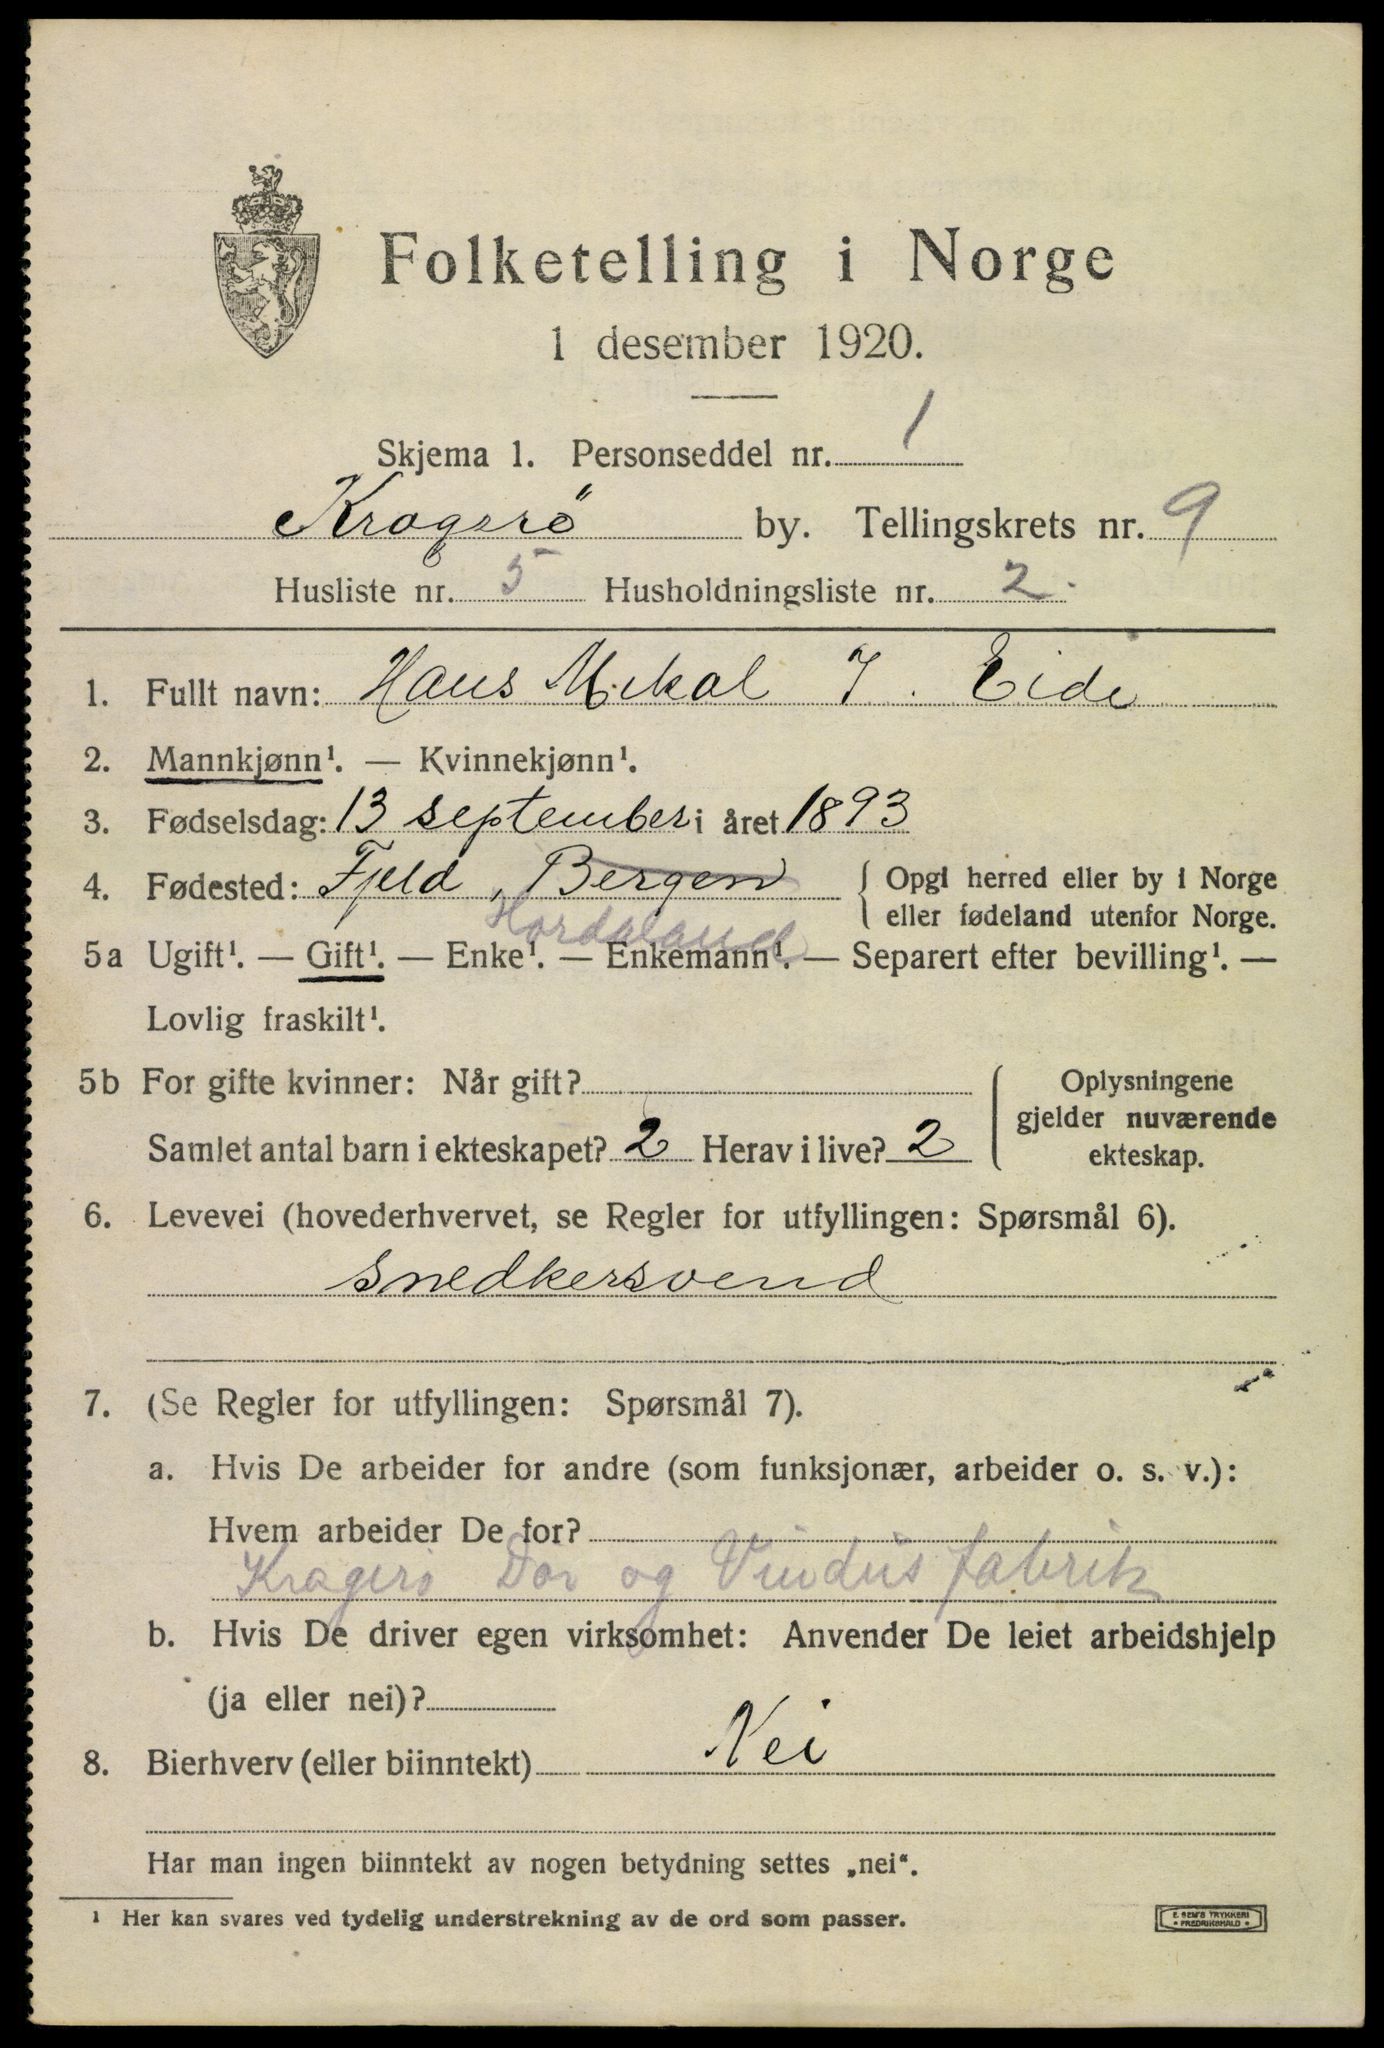 Folketelling i Norge
1 desember 1920.
Skjema 1. Personseddel nr. 1
Kragerö by. Tellingskrets nr. 9
Husliste nr. 5 Husholdningsliste nr. 2.
1. Fullt navn: Hans Mikal J. Eide
2. Mannkjønn¹. — Kvinnekjønn¹.
3. Fødselsdag: 13 september i året 1893
4. Fødested: Fjeld, Bergen { Opgi herred eller by i Norge
eller fødeland utenfor Norge.
Hordaland
5a Ugift¹. — Gift¹. — Enke¹. — Enkemann¹. — Separert efter bevilling¹. —
Lovlig fraskilt¹.
5b For gifte kvinner: Når gift?
Samlet antal barn i ekteskapet? 2 Herav i live? 2
Oplysningene
gjelder nuværende
ekteskap.
6. Levevei (hovederhvervet, se Regler for utfyllingen: Spørsmål 6).
Snedkersvend
7. (Se Regler for utfyllingen: Spørsmål 7).
a. Hvis De arbeider for andre (som funksjonær, arbeider o. s. v.):
Hvem arbeider De for?
Kragerö Dör og Vindusfabrik
b. Hvis De driver egen virksomhet: Anvender De leiet arbeidshjelp
(ja eller nei)?
8. Bierhverv (eller biinntekt) Nei
Har man ingen biinntekt av nogen betydning settes „nei“.
¹ Her kan svares ved tydelig understrekning av de ord som passer.
E. SEM'S TRYKKERI
• FREDRIKSHALD •